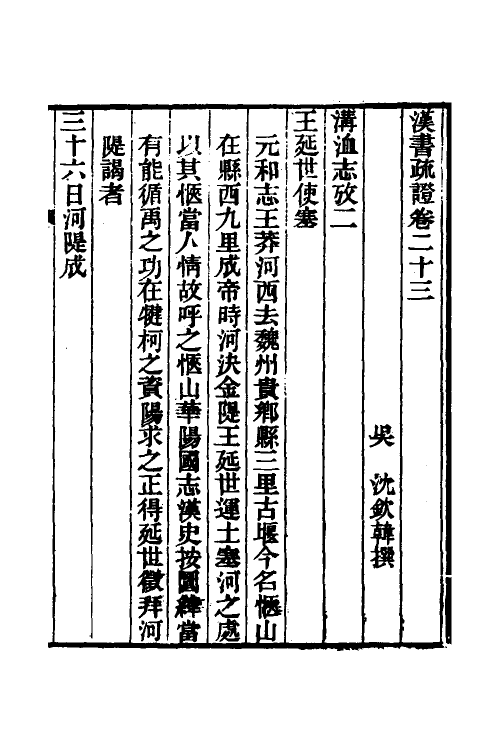 漢書疏證卷二十三
吳　沈欽韓撰
溝洫志攷二
王延世使塞
元和志王莽河西去魏州貴鄉縣三里古堰今名愜山
在縣西九里成帝時河決金隄王延世運土塞河之處
以其愜當人情故呼之愜山華陽國志漢史按圖緯當
有能循禹之功在犍柯之資陽求之正得延世徵拜河
隄謁者
三十六日河隄成